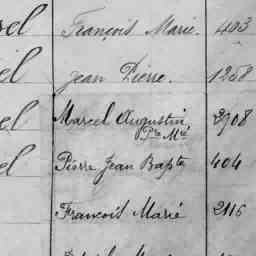 sel François Marie. 403
el Jean Pierre. 1258
el Marcel Augustin 2708
Pre Mie
el Pierre Jean Bapte 404
François Marie 2116